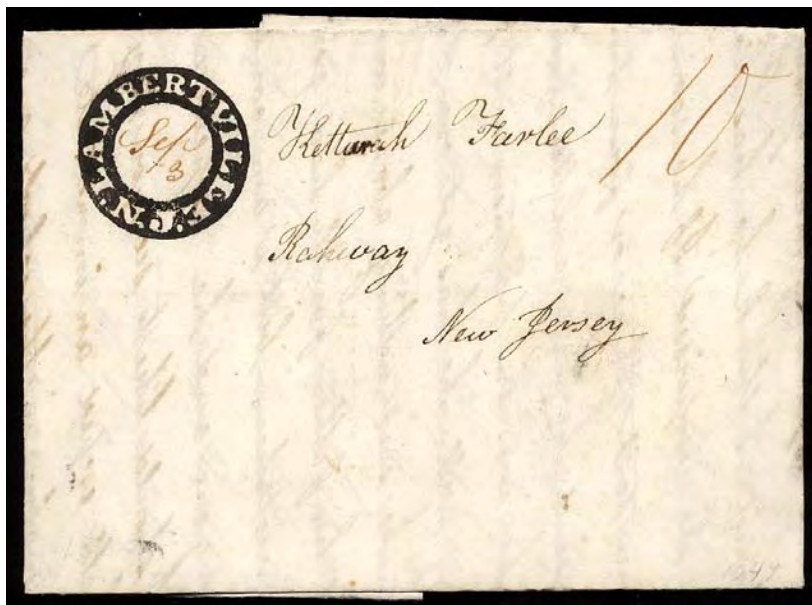 LAMBERTVILLE N.J.
Sep
13
Ketturah Farlee
10
Rahway
New Jersey